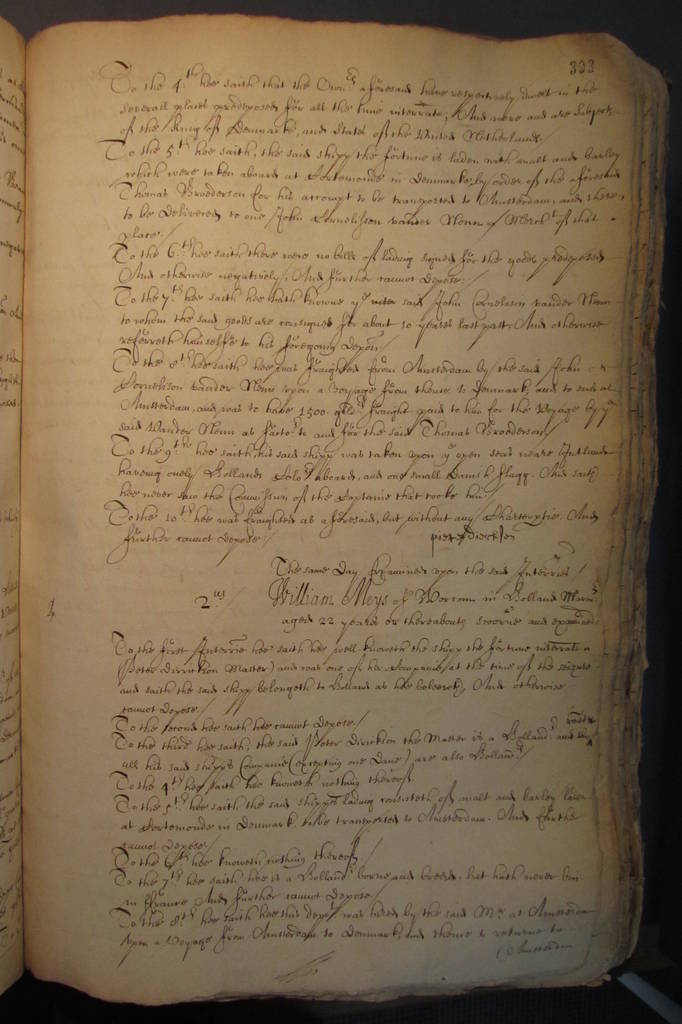 303
To the 4.th hee saith that the Own:rs aforesaid have respectively dwelt in the
severall places predeposed for all the time interrate; And were and are Subjects
of the King of Denmarke, and States of the United Netherlands./
To the 5.th hee saith, the said shipp the fortune is laden with malt and barley
which were taken aboard at in Denmarke, by order of the aforesaid
Thomas Broderson for his accompt to be transported to Amsterdam, and there
to be delivered to one John Cornelisson vander a Merch.t of that
place./
To the 6.th hee saith there were no bills of lading signed for the goods predeposed
And otherwise negatively; And further cannot depose./
To the 7.th hee saith hee hath knowne y.e said John Cornelison vander
to whom the said goods are consigned for about 10 yeares last past. And otherwise
referreth himselfe to his foregoing depon./
To the 8.th hee saith hee was fraighted from Amsterdam by the said John
Cornelison vander upon a voyage from thence to Denmark, and to end at
Amsterdam, and was to have 1500 gld.rs fraight paid to him for the voyage by y.e
said Vander as factor to and for the said Thomas Broderson/
To the 9.th hee saith, his said shipp was taken upon y.e open seas neare Jutland
having onely Hollands Colo.rs aboard, and one small Danish flagg. And saith
hee never saw the Commission of the Captaine that tooke him./
To the 10.th hee was fraighted as aforesaid, but without any Charterptie. And
further cannot depose./
pieter dircksen
The same day Examined upon the said Interries/
2.us/ William Meys of Worcom in Holland Marin.r
aged 22 yeares or thereabouts sworne and examined.
To the first Interrie hee saith hee well knoweth the shipp the fortune interrate
(Peter Dirrickson Master) and was one of her Companie at the time of the seizure
and saith the said shipp belongeth to Holland as hee beleeveth, And otherwise
cannot depose./
To the second hee saith hee cannot depose/
To the third hee saith, the said Peter Dirickson the Master is a Holland.r and
all his said shipps Companie (excepting one Dane) are also Holland.rs
To the 4.th hee saith hee knoweth nothing thereof.
To the 5.th hee saith the said shipps lading consisteth of malt and barley laden
at in Denmark, to be transported to Amsterdam. And further
cannot depose./
To the 6.th hee knoweth nothing thereof./
To the 7.th hee saith hee is a Holland.r borne and breed, but hath never bin
in france And further cannot depose/
To the 8.th hee saith hee this dep.t was hired by the said M.r at Amsterdam
upon a voyage from Amsterdam to Denmark, and thence to returne to
(Amsterdam